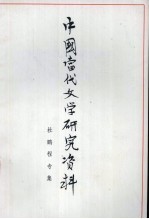 中國當代文学研究資料
杜鹏程专集